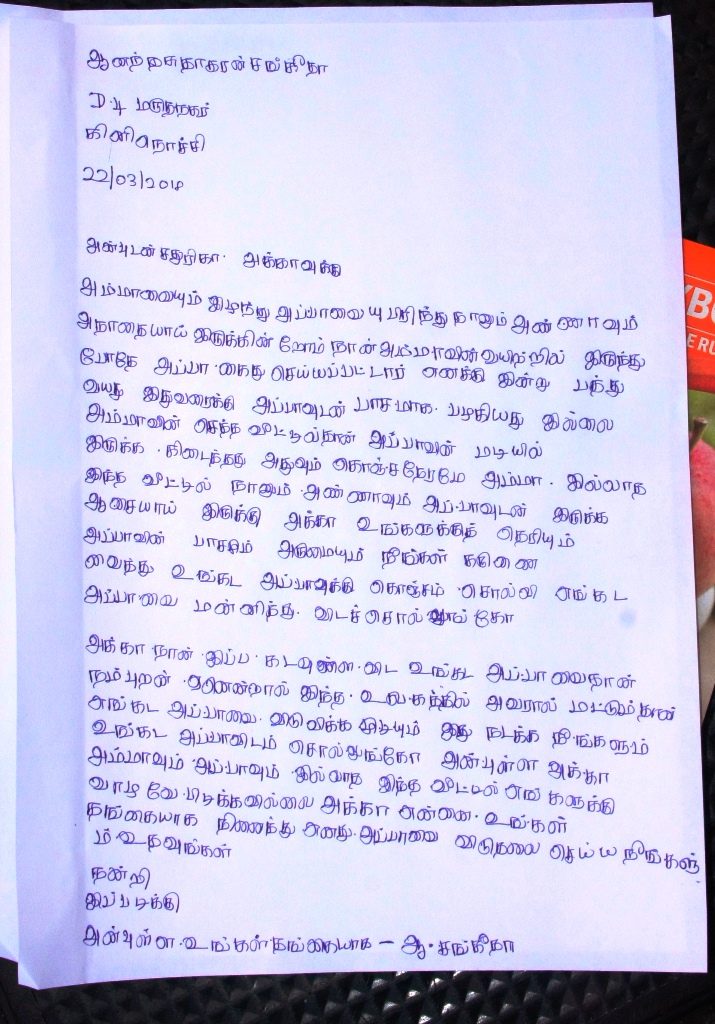 ஆனந்தசுதாகரன் சங்கீதா
D.4 மருதநகர்
கிளிநொச்சி
22/03/2018
அன்புடன் சதுரிகா. அக்காவுக்கு
அம்மாவையும் இழந்து அப்பாவையு பிரிந்து நானும் அண்ணாவும்
அநாதையாய் இருக்கின்றோம் நான் அம்மாவின் வயிற்றில் இருந்து
போதே அப்பா கைது செய்யப்பட்டார் எனக்கு இன்று பத்து
வயது இதுவரைக்கு அப்பாவுடன் பாசமாக பழகியது இல்லை
அம்மாவின் செத்த வீட்டில்தான் அப்பாவின் மடியில்
இருக்க கிடைத்தது அதுவும் கொஞ்சநேரமே அம்மா இல்லாத
இந்த வீட்டில் நானும் அண்ணாவும் அப்பாவுடன் இருக்க
ஆசையாய் இருக்கு அக்கா உங்களுக்குத் தெரியும்
அப்பாவின் பாசமும் அருமையும் நீங்கள் கருணை
வைத்து உங்கட அப்பாவுக்கு கொஞ்சம் சொல்லி எங்கட
அப்பாவை மன்னித்து விடச்சொல்லுங்கோ
அக்கா நான் இப்ப கடவுள்ள விட உங்கட அப்பாவைதான்
நம்புறன் ஏனென்றால் இந்த உலகத்தில் அவரால் மட்டும்தான்
எங்கட அப்பாவை விடுவிக்க முடியும் இது நடக்க நீங்களும்
உங்கட அப்பாவிடம் சொல்லுங்கோ அன்புள்ள அக்கா
அம்மாவும் அப்பாவும் இல்லாத இந்த வீட்டில் எங்களுக்கு
வாழவே பிடிக்கவில்லை அக்கா என்னை உங்கள்
தங்கையாக நினைத்து எனது அப்பாவை விடுதலை செய்ய நீங்களு
ம் உதவுங்கள்
நன்றி
இப்படிக்கு
அன்புள்ள உங்கள் தங்கையாக – ஆ. சங்கீதா